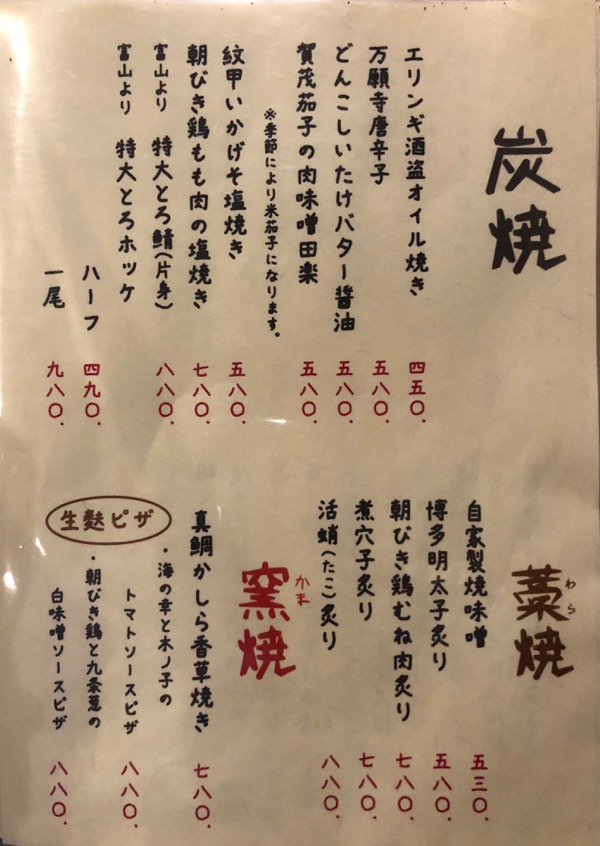 炭焼
エリンギ酒盗オイル焼き 四五〇.
万願寺唐辛子 五八〇.
どんこしいたけバター醤油 五八〇.
賀茂茄子の肉味噌田楽 五八〇.
※季節により米茄子になります。
紋甲いかげそ塩焼き 五八〇.
朝びき鶏もも肉の塩焼き 七八〇.
富山より 特大とろ鯖(片身) 八八〇.
富山より 特大とろホッケ
ハーフ 四九〇.
一尾 九八〇.
藁焼
わら
自家製焼味噌 五三〇.
博多明太子炙り 五八〇.
朝びき鶏むね肉炙り 七八〇.
煮穴子炙り 七八〇.
活蛸(たこ)炙り 八八〇.
窯焼
かま
真鯛かしら香草焼き 七八〇.
生麩ピザ
・海の幸と木ノ子の
トマトソースピザ 八八〇.
・朝びき鶏と九条葱の
白味噌ソースピザ 八八〇.